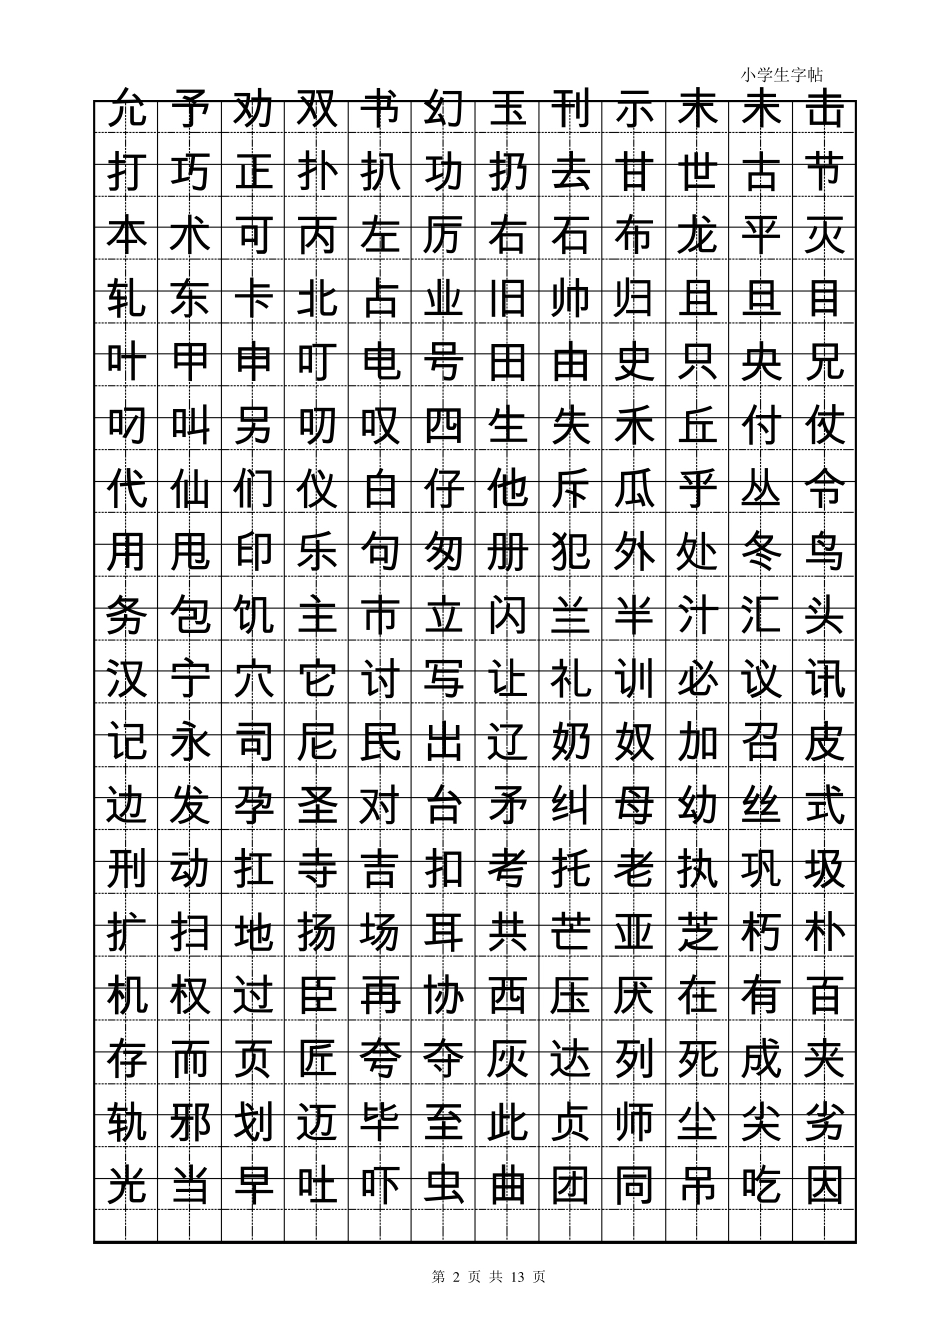 小学生字帖
允 予 劝 双 书 幻 玉 刊 示 末 未 击
打 巧 正 扑 扒 功 扔 去 甘 世 古 节
本 术 可 丙 左 厉 右 石 布 龙 平 灭
轧 东 卡 北 占 业 旧 帅 归 且 旦 目
叶 甲 申 叮 电 号 田 由 史 只 央 兄
叼 叫 另 叨 叹 四 生 失 禾 丘 付 仗
代 仙 们 仪 白 仔 他 斥 瓜 乎 丛 令
用 甩 印 乐 句 匆 册 犯 外 处 冬 鸟
务 包 饥 主 市 立 闪 兰 半 汁 汇 头
汉 宁 穴 它 讨 写 让 礼 训 必 议 讯
记 永 司 尼 民 出 辽 奶 奴 加 召 皮
边 发 孕 圣 对 台 矛 纠 母 幼 丝 式
刑 动 扛 寺 吉 扣 考 托 老 执 巩 圾
扩 扫 地 扬 场 耳 共 芒 亚 芝 朽 朴
机 权 过 臣 再 协 西 压 厌 在 有 百
存 而 页 匠 夸 夺 灰 达 列 死 成 夹
轨 邪 划 迈 毕 至 此 贞 师 尘 尖 劣
光 当 早 吐 吓 虫 曲 团 同 吊 吃 因
第 2 页 共 13 页